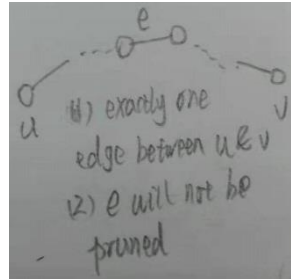 e
u
v
(1) exactly one
edge between u & v
(2) e will not be
pruned